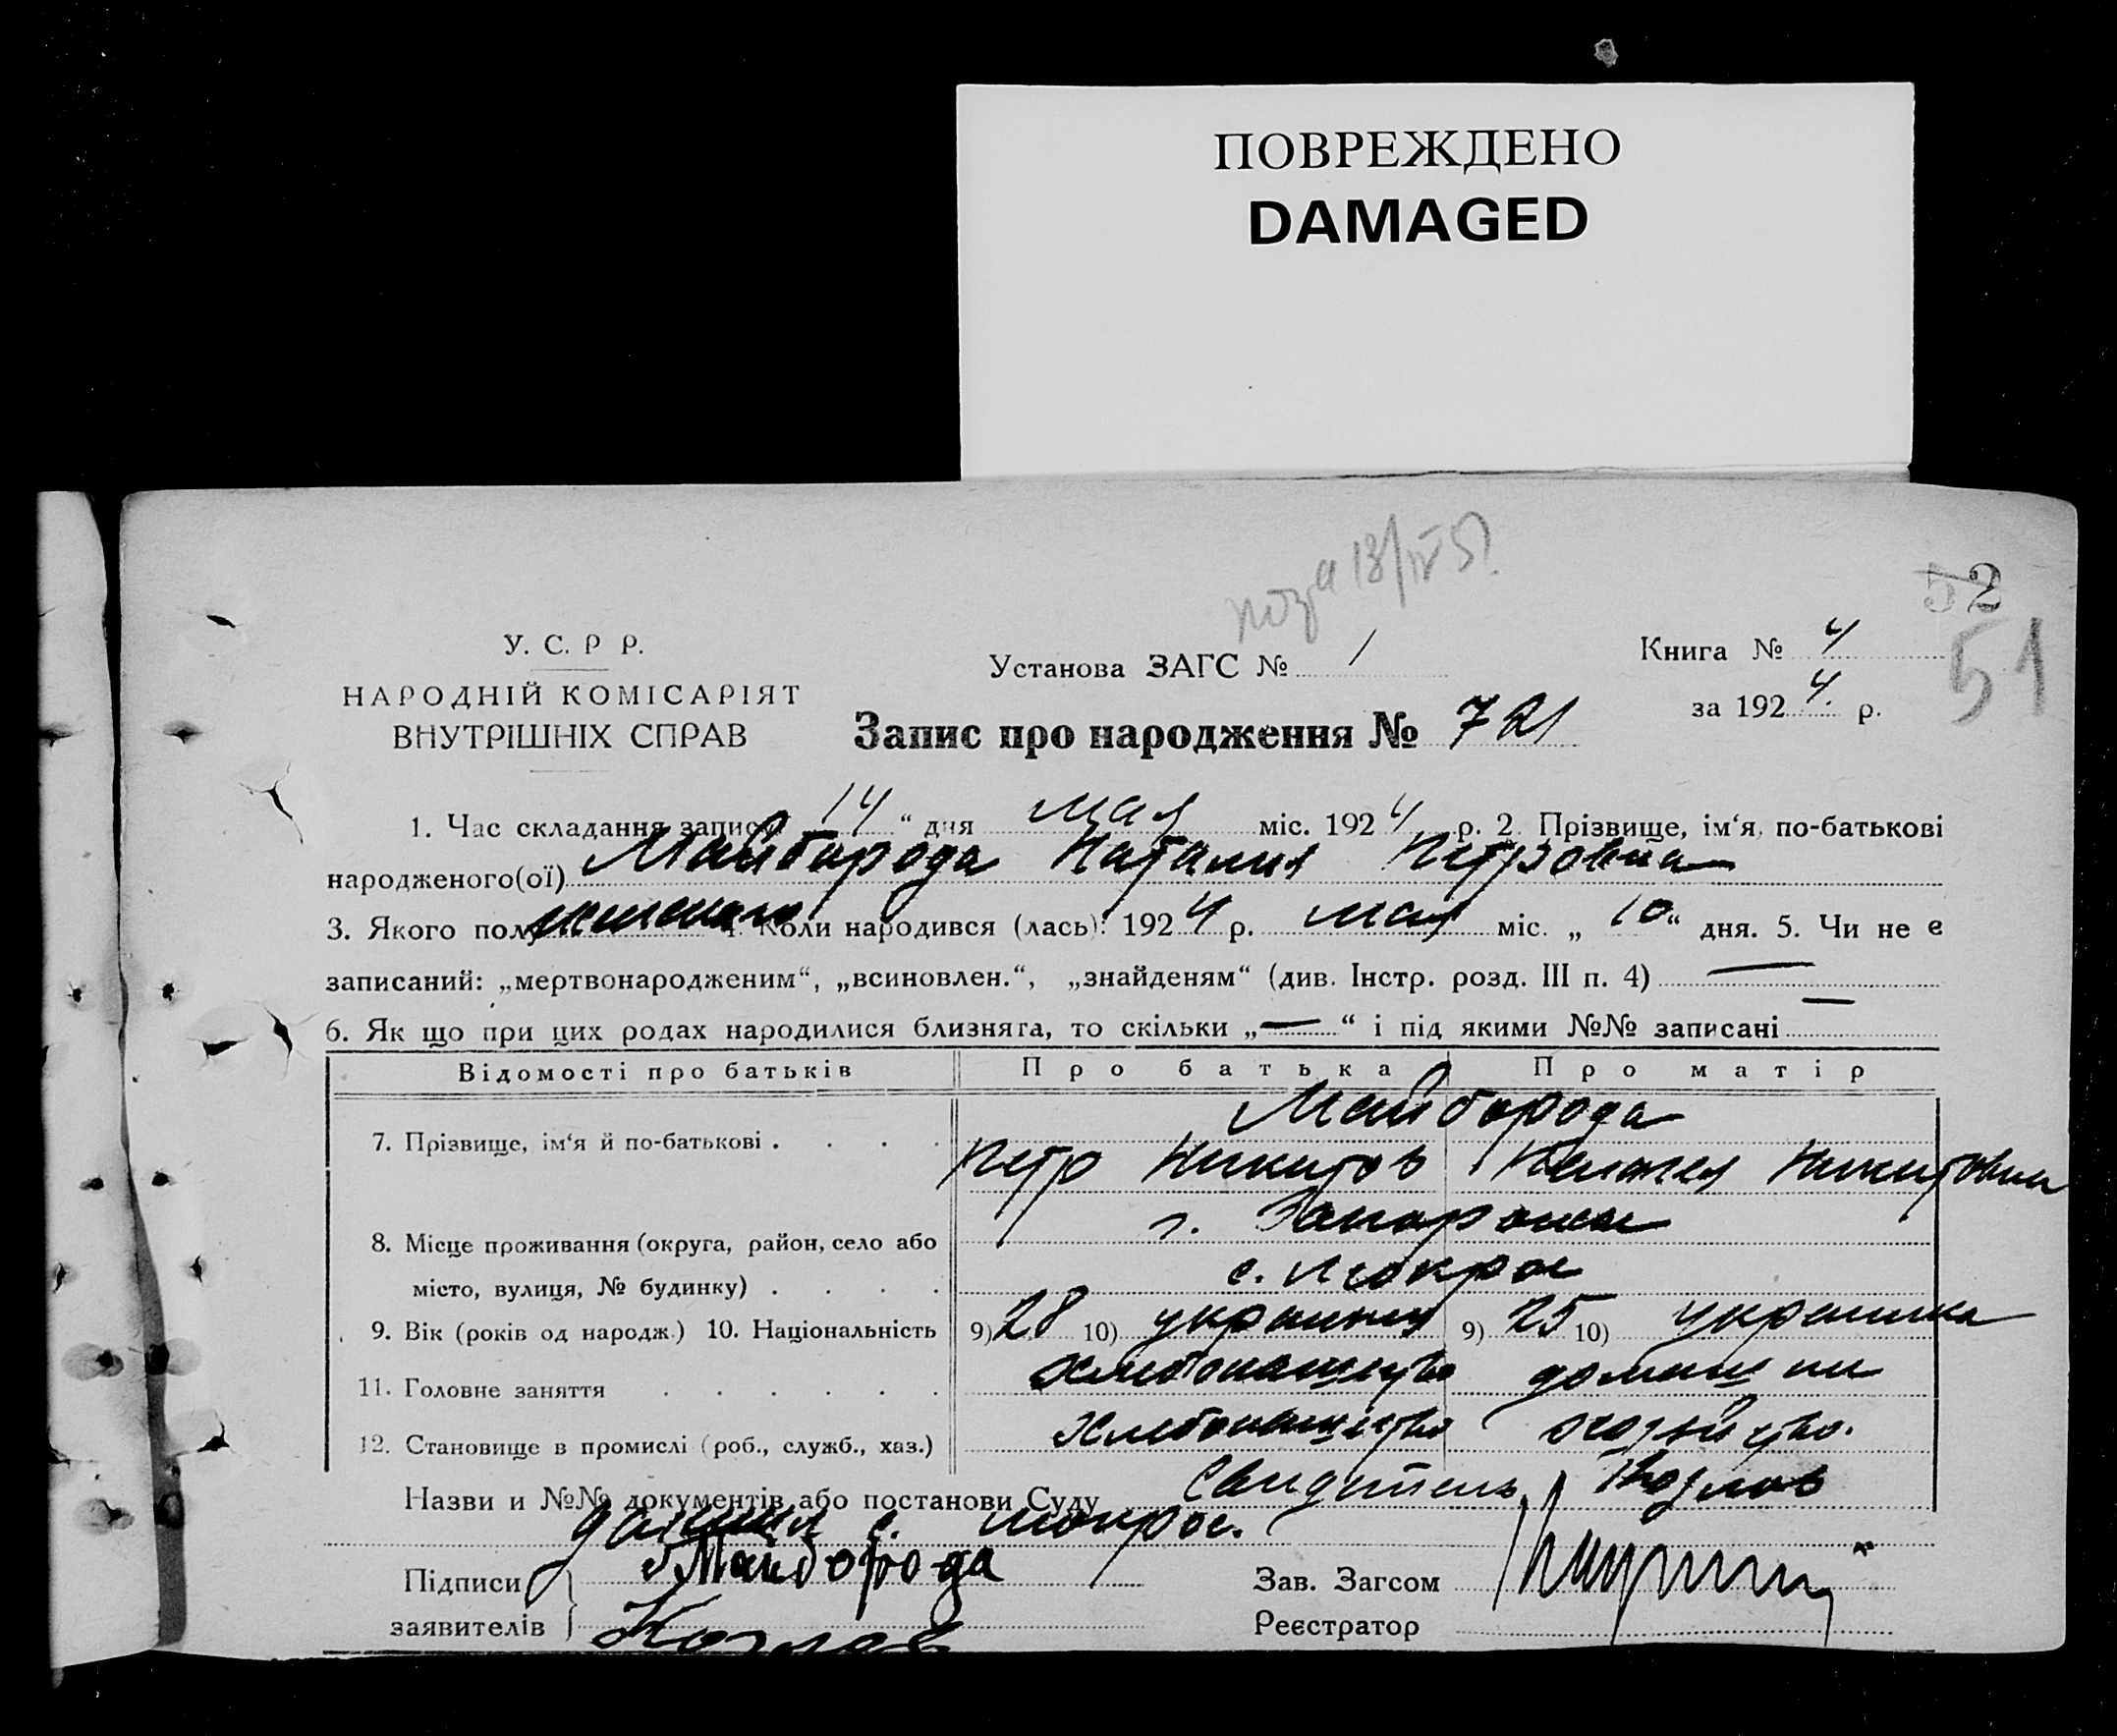 ПОВРЕЖДЕНО
DAMAGED
18/IV 51
2
51
У. С. Р Р.
НАРОДНІЙ КОМІСАРІЯТ
ВНУТРІШНІХ СПРАВ
Установа ЗАГС № 1
Книга № 4
за 1924. р.
Запис про народження № 721
1. Час складання запису 14 “ дня мая міс. 1924 р. 2. Прізвище, ім‘я, по-батькові
народженого(ої) Майборода Наталия Петровна
3. Якого полу женского 4. Коли народився (лась): 1924 р. мая міс. „ 10 “ дня. 5. Чи не є
записаний: „мертвонародженим“, „всиновлен.“, „знайденям“ (див. Інстр. розд. III п. 4) —
6. Як що при цих родах народилися близнята, то скільки „—“ і під якими №№ записані —
Відомості про батьків Про батька Про матір
Майборода
7. Прізвище, ім‘я й по-батькові . . . .
Петр Никитов Никитовна
г. Запорожье
8. Місце проживання (округа, район, село або
с. Мокрое
місто, вулиця, № будинку) . . . .
9. Вік (років од народж.) 10. Національність 9) 28 10) украинец 9) 25 10) украинка
11. Головне заняття . . . . . . хлебопашество домашн
12. Становище в промислі (роб., служб., хаз.) хлебопашество хозяйство.
Назви и №№ документів або постанови Суду Свидетель Козлов
Даниил с. Мокрое.
Підписи заявителів } Майборода
Козлов
Зав. Загсом
Реєстратор